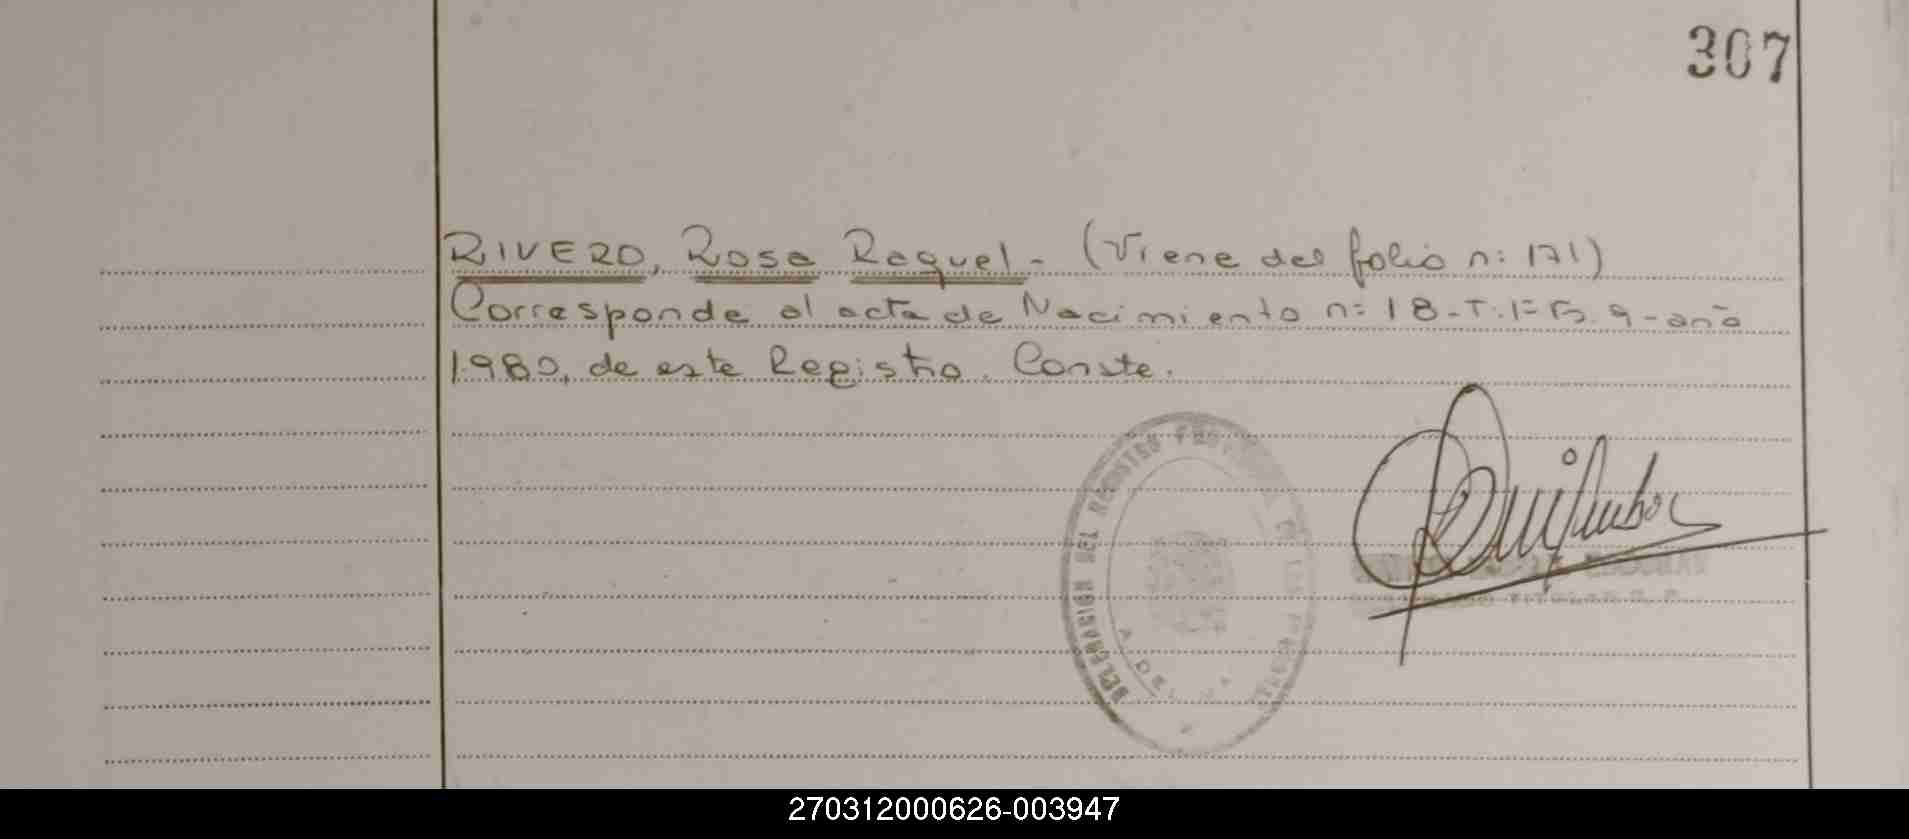 307
RIVERO, Rosa Raquel - (Viene del folio n: 171)
Corresponde al acta de Nacimiento n: 18-T. 1= F. 9- año
1.980, de este Registro. Conste.
DELEGACIÓN DEL REGISTRO PROVINCIAL DE LAS PERSONAS
TITULAR
270312000626-003947